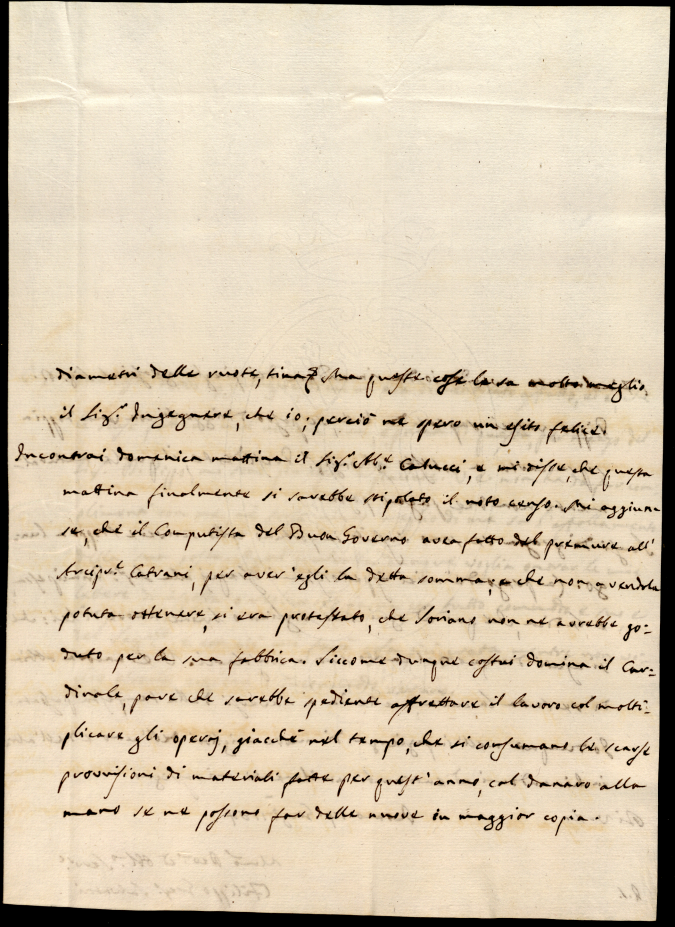 diametri delle ruote, tina &c. Ma queste cose le sa molto meglio
il Sig.r Ingegnere, che io; perciò ne spero un esito felice.
Incontrai domenica mattina il Sig.r Ab.e Catucci, e mi disse, che questa
mattina finalmente si sarebbe stipolato il noto censo. Mi aggiun
se, che il Computista del Buon Governo avea fatto del premure all'
Arcipr.e Catrani, per aver'egli la detta somma, e che non avendola
potuta ottenere, si era protestato, che Soriano non ne avrebbe go=
duto per la sua fabbrica. Siccome dunque costui domina il Car=
dinale, pare che sarebbe spediente affrettare il lavoro col molti=
plicare gli operaj, giacchè nel tempo, che si consumano le scarse
provvisioni di materiali fatte per quest'anno, col danaro alla
mano se ne possono far delle nuove in maggior copia.